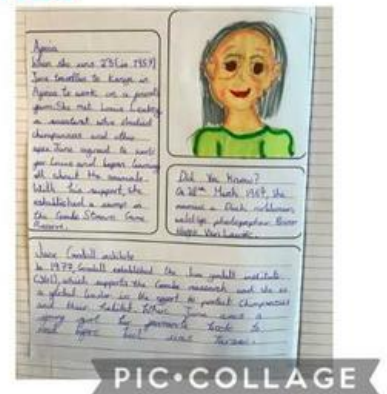 Africa
When she was 23 (in 1957)
Jane travelled to Kenya in
Africa to work on a
farm. She met Louis Leakey
a scientist who studied
chimpanzees and other
apes. Jane agreed to work
for Louis and began learning
all about the animals.
With his support, she
established a camp in
the Gombe Stream Game
Reserve.
Did You Know?
On 28th March 1964, she
married a Dutch nobleman,
wildlife photographer Baron
Hugo Van Lawick.
Jane Goodall institute
In 1977, Goodall established the Jane goodall institute
(JGI), which supports the Gombe research and she is
a global leader in the effort to protect Chimpanzees
and their habitat. When Jane was a
young girl her favourite book to
read
PIC•COLLAGE